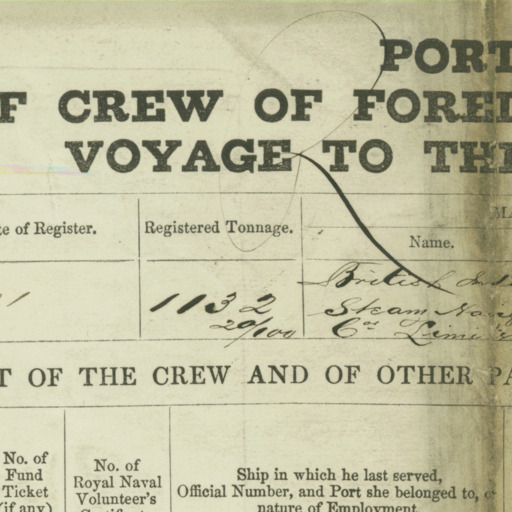 PORT
F CREW OF FOREI
VOYAGE TO THE
te of Register.
Registered Tonnage.
MA
Name.
1132
20/100
British Ind
Steam Nav
Cos Limi
T OF THE CREW AND OF OTHER PA
No. of
Fund
Ticket
(if any)
No. of
Royal Naval
Volunteer's
Certificate
Ship in which he last served,
Official Number, and Port she belonged to, o
nature of Employment